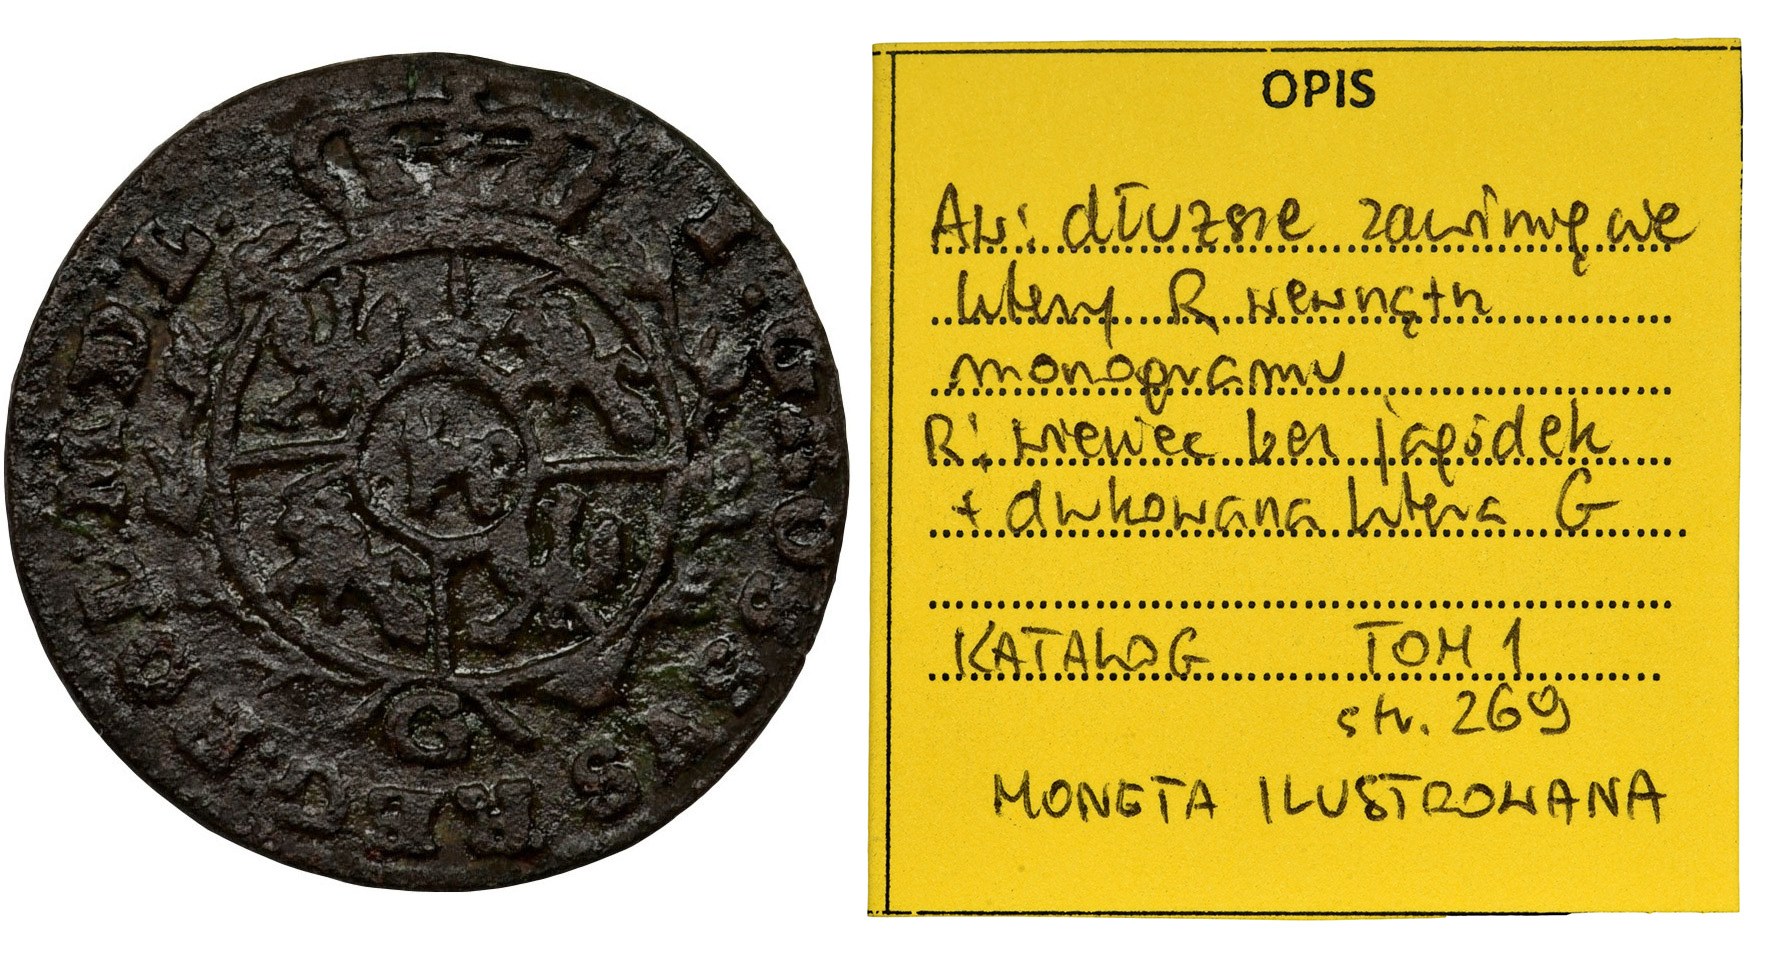 I·GROSSUS REG·POL·M·D·L·
G
OPIS
Aw: dłuższe zawinięcie
litery R wewnątrz
monogramu
R: wieniec bez jagódek
+ dwukowana litera G
KATALOG TOM 1
str. 269
MONETA ILUSTROWANA